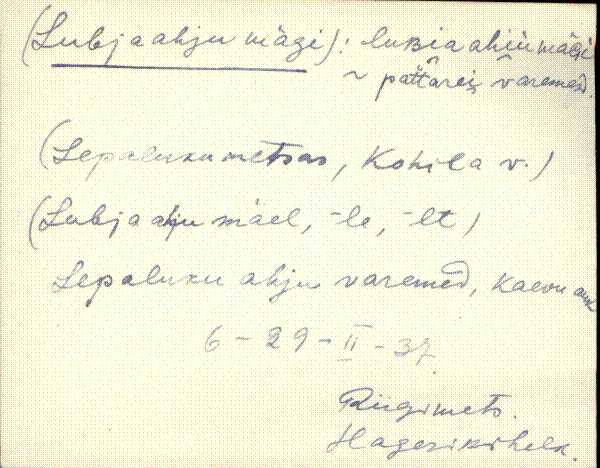 (Lubjaahju mägi): luBiaahiu mäǵi
~ pattarei varemed.
(Lepalukumetsas, Kohila v.)
(Lubjaahju mäel, -le, -lt)
Lepaluku ahju varemed, kaevu auk
6-29-II-37.
Riigimets.
Hageri kihelk.